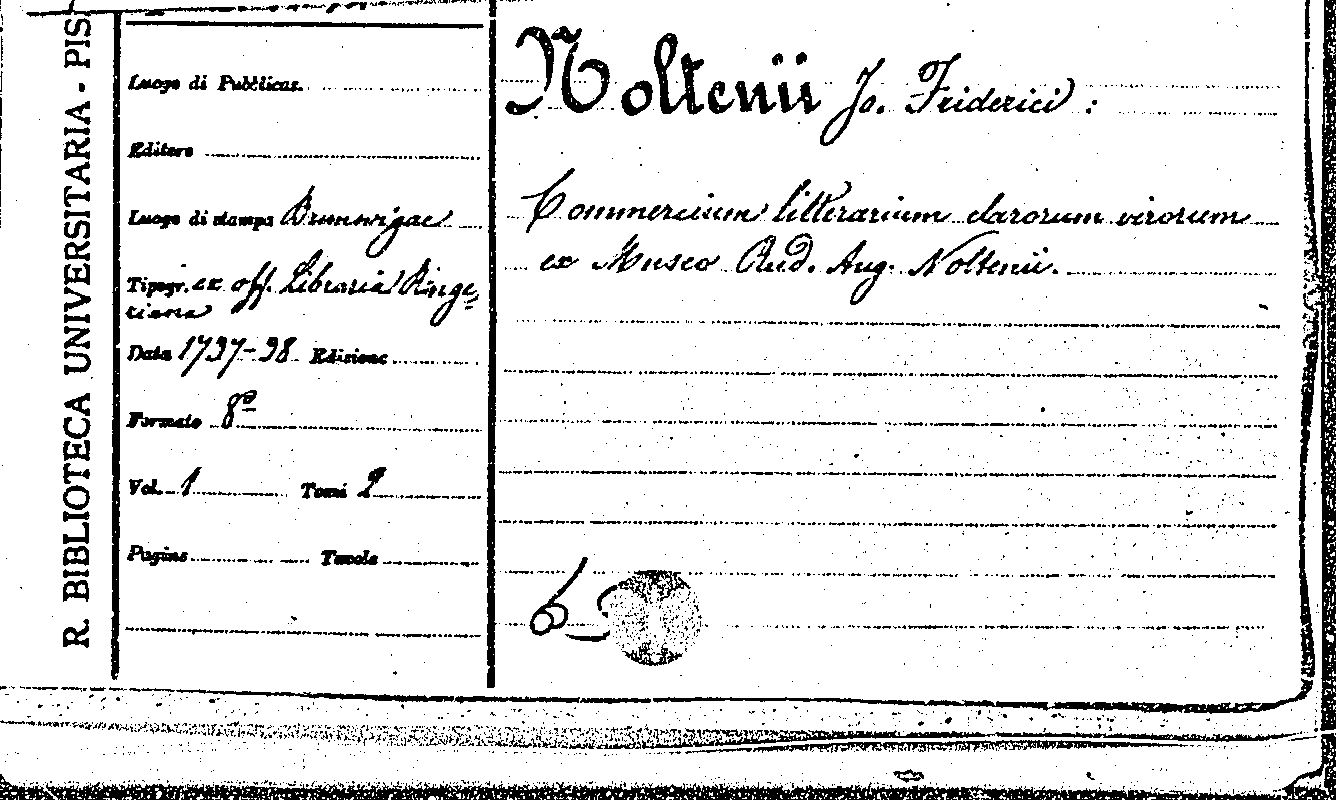 R. BIBLIOTECA UNIVERSITARIA - PIS
Luogo di Pubblicaz.
Editore
Luogo di stampa Brunsvigae
Tipogr. ex off. Libraria Renge=
riana
Data 1737-38 Edizione
Formato 8º
Vol. 1 Tomi 2
Pagine Tavole
Noltenii Jo. Friderici :
Commercium litterarium clarorum virorum
ex Museo Rud. Aug. Noltenii.